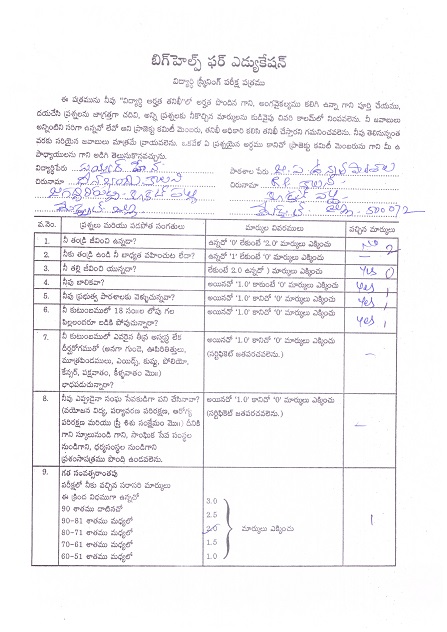 బిగ్‌హెల్ప్ ఫర్ ఎడ్యుకేషన్
విద్యార్థి స్క్రీనింగ్ పరీక్ష పత్రము
ఈ పత్రమును నీవు "విద్యార్థి అర్హత తనిఖీ"లో అర్హత పొందిన గాని, అంగవైకల్యము కలిగి ఉన్నా గాని పూర్తి చేయుము,
దయచేసి ప్రశ్నలను జాగ్రత్తగా చదివి, అన్ని ప్రశ్నలకు నీకొచ్చిన మార్కులను కుడివైపు చివరి కాలమ్‌లో నింపవలెను. నీ జవాబులు
అన్నింటిని సరిగా ఉన్నవో లేవో అని ప్రాజెక్టు కమిటీ మెంబరు, తనిఖీ అధికారి కలిసి తనిఖీ చేస్తారని గమనించవలెను. నీవు తెలిసినంత
వరకు సరియైన జవాబులు మాత్రమే వ్రాయవలెను. ఒకవేళ ఏ ప్రశ్నయైన అర్థము కానిచో ప్రాజెక్టు కమిటీ మెంబరును గాని మీ ఉ
పాధ్యాయులను గాని అడిగి తెలుసుకొనవచ్చును.
విద్యార్థిపేరు పాఠశాల పేరు
చిరునామా చిరునామా
500072
వ.నెం. ప్రశ్నలు మరియు వడపోత సంగతులు మార్కుల వివరములు వచ్చిన మార్కులు
1. నీ తండ్రి జీవించి ఉన్నడా? ఉన్నచో '0' లేకుంటే '2.0' మార్కులు ఎక్కించు No 2
2. నీకు తండ్రి ఉండి నీ బాధ్యత వహించుట లేదా? ఉన్నచో '0' లేకుంటే '1' మార్కులు ఎక్కించు —
3. నీ తల్లి జీవించి యున్నదా? లేకుంటే 2.0 ఉన్నచో ) మార్కులు ఎక్కించు Yes 0
4. నీవు బాలికవా? అయినచో '1.0' కాకుంటే '0' మార్కులు ఎక్కించు Yes 1
5. నీవు ప్రభుత్వ పాఠశాలకు వెళ్ళుచున్నావా? అయినచో '1.0' కానిచో '0' మార్కులు ఎక్కించు Yes 1
6. నీ కుటుంబములో 18 సం॥ల లోపు గల అయినచో '1.0' కానిచో '0' మార్కులు ఎక్కించు Yes 1
పిల్లలందరూ బడికి పోవుచున్నారా?
7. నీ కుటుంబములో ఎవరైన తీవ్ర అస్వస్థ లేక అయినచో '1.0' కానిచో '0' మార్కులు ఎక్కించు
దీర్ఘరోగముతో (అనగా గుండె, ఊపిరితిత్తులు, (సర్టిఫికెట్ జతపరచవలెను.) —
మూత్రపిండములు, ఎయిడ్స్, కుష్టు, పోలియో,
కేన్సర్, పక్షవాతం, కీళ్ళవాతం మొ॥)
బాధపడుచున్నారా?
8. నీవు ఎప్పుడైనా సంఘ సేవకుడిగా పని చేసినావా? అయినచో '1.0' కానిచో '0' మార్కులు ఎక్కించు
(వయోజన విద్య, పర్యావరణ పరిరక్షణ, ఆరోగ్య (సర్టిఫికెట్ జతపరచవలెను.)
పరిరక్షణ మరియు స్త్రీ శిశు సంక్షేమం మొ॥) దీనికి —
గాని స్కూలునుండి గాని, సాంఘిక సేవ సంస్థల
నుండిగాని, ధర్మసంస్థల నుండిగాని
ప్రశంసాపత్రము పొంది ఉండవలెను.
9. గత సంవత్సరాంతపు
పరీక్షలో నీకు వచ్చిన సరాసరి మార్కులు
ఈ క్రింద విధముగా ఉన్నచో
90 శాతము దాటినచో 3.0
90-81 శాతము మధ్యలో 2.5
80-71 శాతము మధ్యలో 2.0 మార్కులు ఎక్కించు 1
70-61 శాతము మధ్యలో 1.5
60-51 శాతము మధ్యలో 1.0